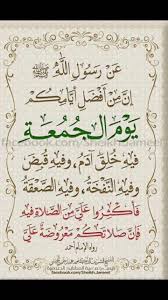 عَنْ رَسُولِ اللَّهِ ﷺ
إِنَّ مِنْ أَفْضَلِ أَيَّامِكُمْ
يَوْمَ الْجُمُعَةِ
فِيهِ خُلِقَ آدَمُ، وَفِيهِ قُبِضَ
وَفِيهِ النَّفْخَةُ، وَفِيهِ الصَّعْقَةُ
فَأَكْثِرُوا عَلَيَّ مِنَ الصَّلَاةِ فِيهِ
فَإِنَّ صَلَاتَكُمْ مَعْرُوضَةٌ عَلَيَّ
رواه الإمام أحمد
facebook.com/SheikhJameel